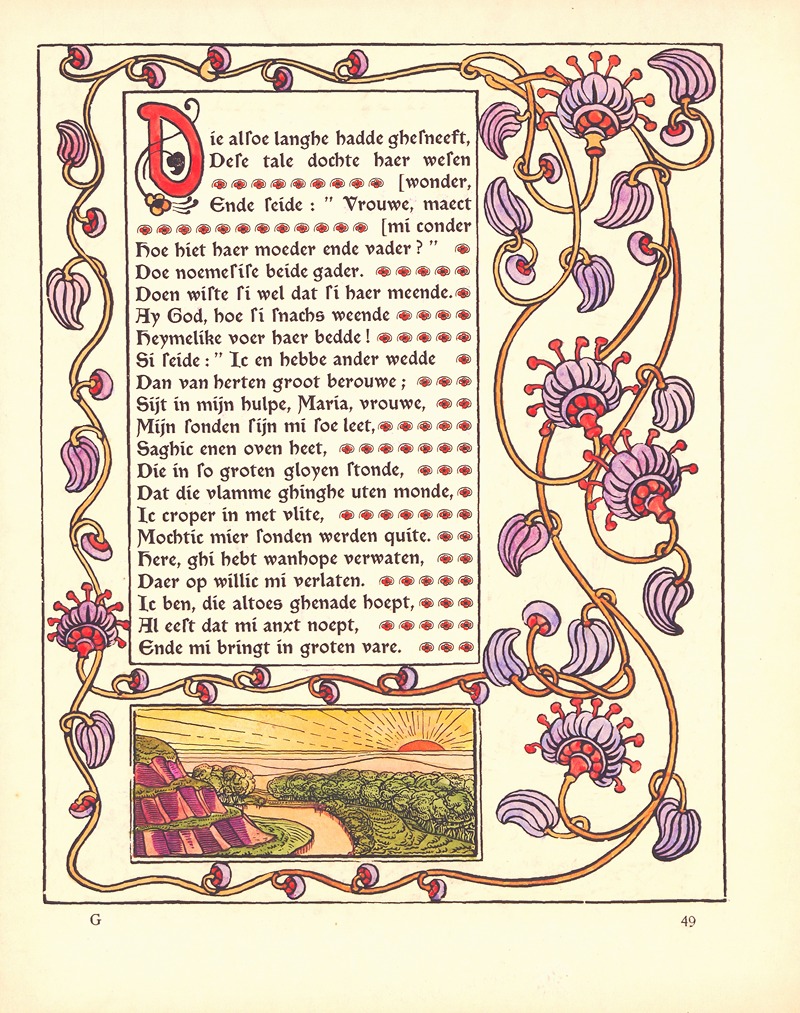 Die alſoe langhe hadde gheſneeft,
Deſe tale dochte haer weſen
[wonder,
Ende ſeide : ” Vrouwe, maect
[mi conder
Hoe hiet haer moeder ende vader ? ”
Doe noemeſiſe beide gader.
Doen wiſte ſi wel dat ſi haer meende.
Ay God, hoe ſi ſnachs weende
Heymelike voer haer bedde !
Si ſeide : ” Ic en hebbe ander wedde
Dan van herten groot berouwe ;
Sijt in mijn hulpe, Maria, vrouwe,
Mijn ſonden ſijn mi ſoe leet,
Saghic enen oven heet,
Die in ſo groten gloyen ſtonde,
Dat die vlamme ghinghe uten monde,
Ic croper in met vlite,
Mochtic mier ſonden werden quite.
Here, ghi hebt wanhope verwaten,
Daer op willic mi verlaten.
Ic ben, die altoes ghenade hoept,
Al eeſt dat mi anxt noept,
Ende mi bringt in groten vare.
G
49